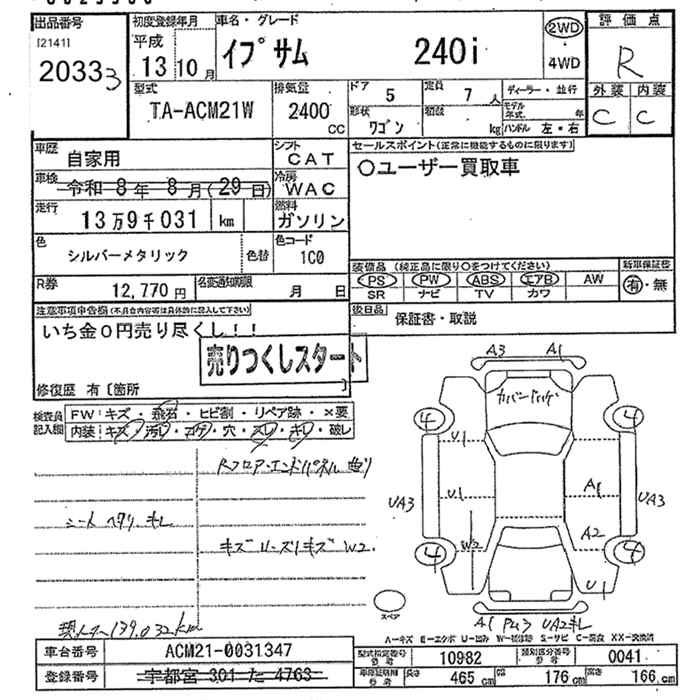 出品番号
[2141]
20333
初度登録年月
平成
13 10 月
車名・グレード
イプサム 240i
2WD
・
4WD
評価点
R
外装 内装
C C
型式
TA-ACM21W
排気量
2400
CC
ドア 5
定員 7 人
形状 ワゴン
積載 kg
ディーラー・並行
モデル年式 年
ハンドル 左・右
車歴 自家用
シフト CAT
車検 令和 8年 8月(29日)
冷房 WAC
走行 13万9千031 km
燃料 ガソリン
色 シルバーメタリック 色替
色コード 1C0
R券 12,770円
名変通知期限 月 日
セールスポイント(正常に機能するものに限ります)
○ユーザー買取車
装備品(純正品に限り○をつけてください)
新車保証書
PS PW ABS エアB AW
SR ナビ TV カワ
有・無
後日品 保証書・取説
注意事項申告欄(不具合内容等は具体的に記入して下さい)
いち金0円売り尽くし!!
売りつくしスタート
修復歴 有〔箇所 〕
検査員記入欄
FW:キズ・飛石・ヒビ割・リペア跡・×要
内装:キズ・汚れ・コゲ・穴・スレ・キレ・破レ
Rフロア・エンドパネル曲り
シートヘタリ、キレ
キズ リーズリキズ W2.
現メーター139,032km
A3 A1
カバーハゲ
4 4
U1
UA3 U1 A1 UA3
W2 A2
4 4
U1
スペア
A1 P43 UA2キレ
A-キズ E-エクボ U-凹み W-補修跡 S-サビ C-腐食 XX-交換済
車台番号 ACM21-0031347
登録番号 宇都宮 301 た 4763
型式指定番号 10982
類別区分番号 0041
車庫証明用参考 長さ 465cm 幅 176cm 高さ 166cm